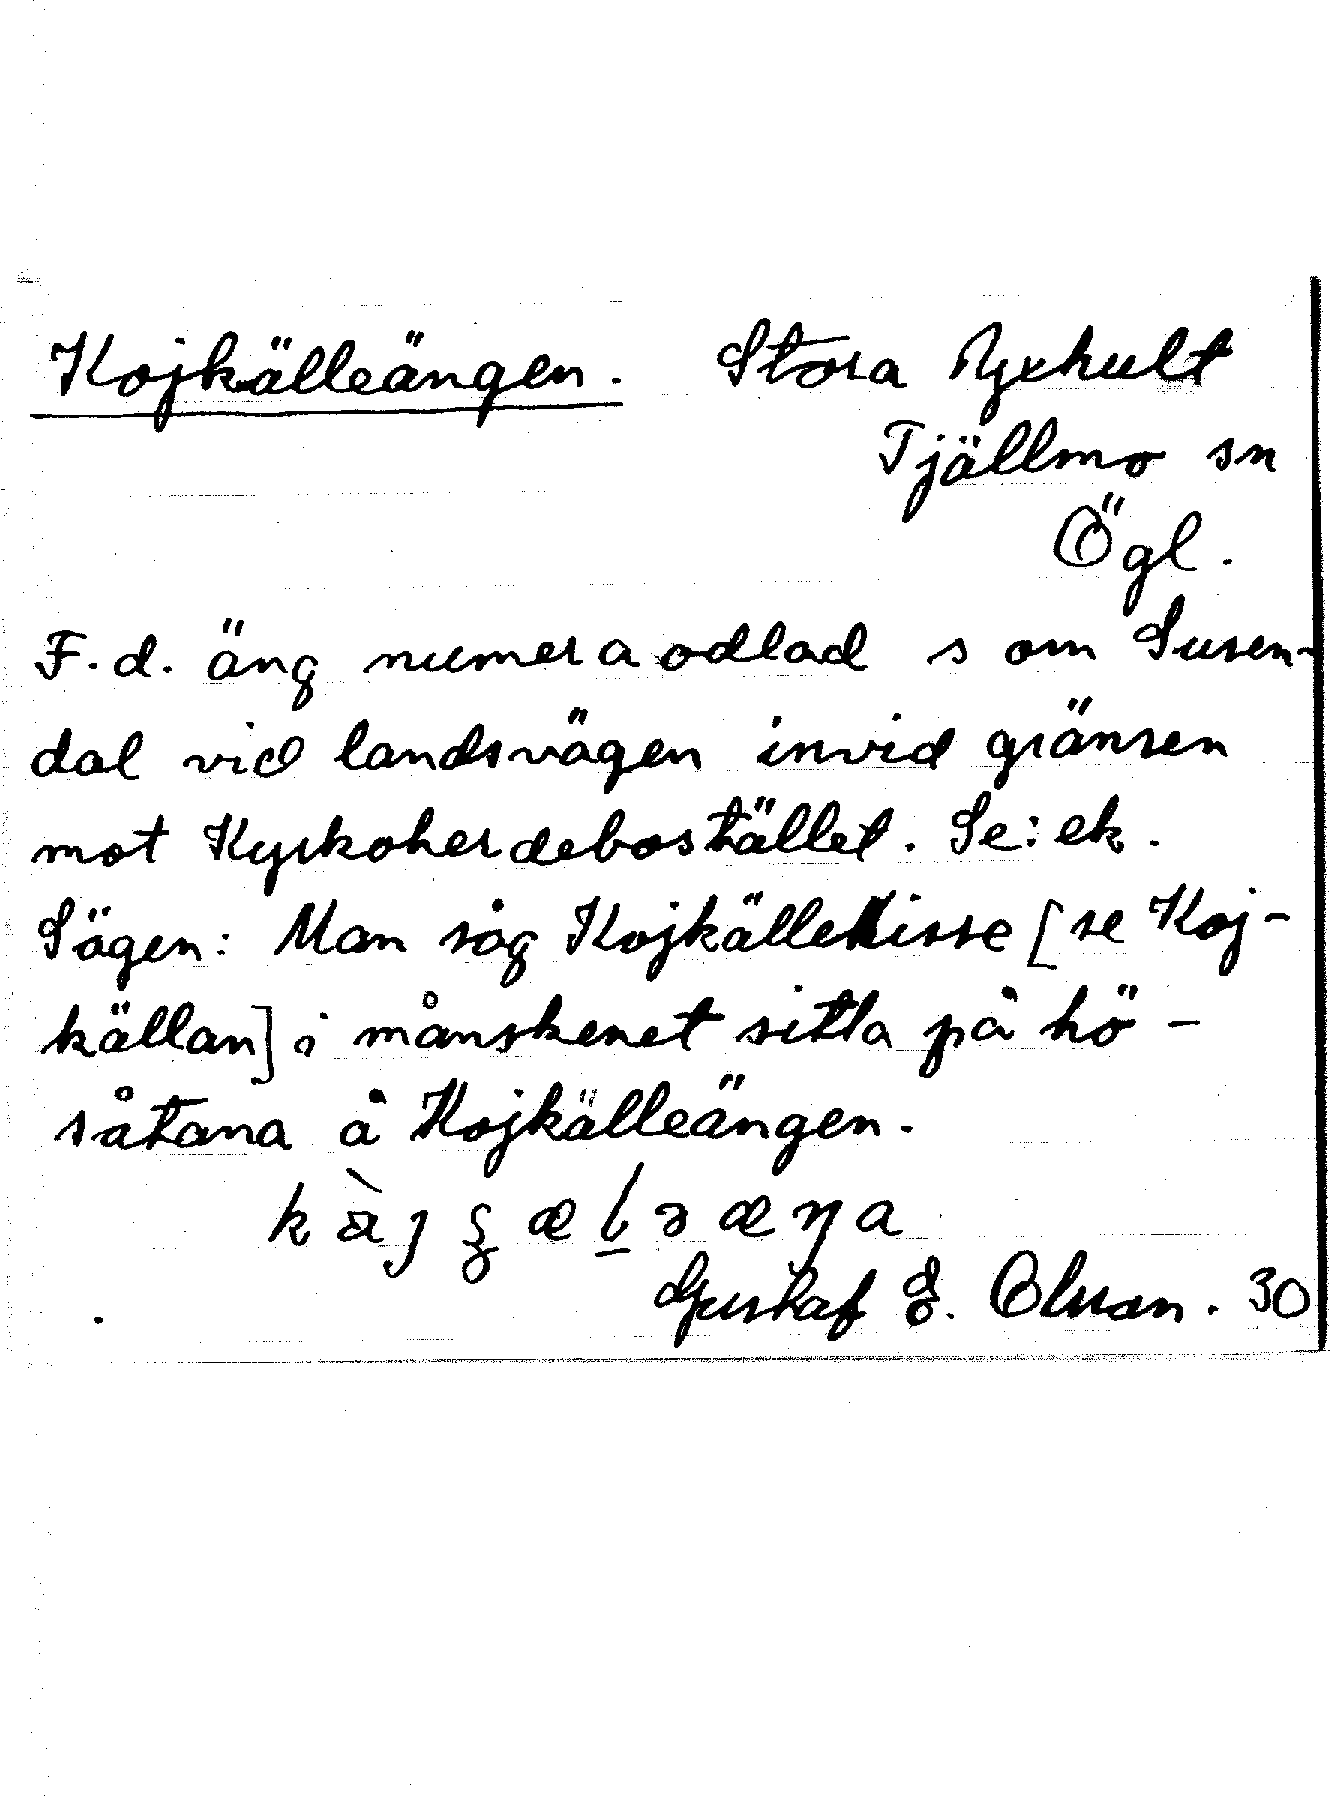 Kojkälleängen. Stora Ryckult
Tjällmo sn
Ögl.
F.d. äng numera odlad som Susen-
dal vid landsvägen invid gränsen
mot Kyrkoherdebostället. Se: ek.
Sägen: Man såg KojkälleNisse [se Koj-
källan] i månskenet sitta på hö-
såtana å Kojkälleängen.
Gustaf E. Olsson. 30